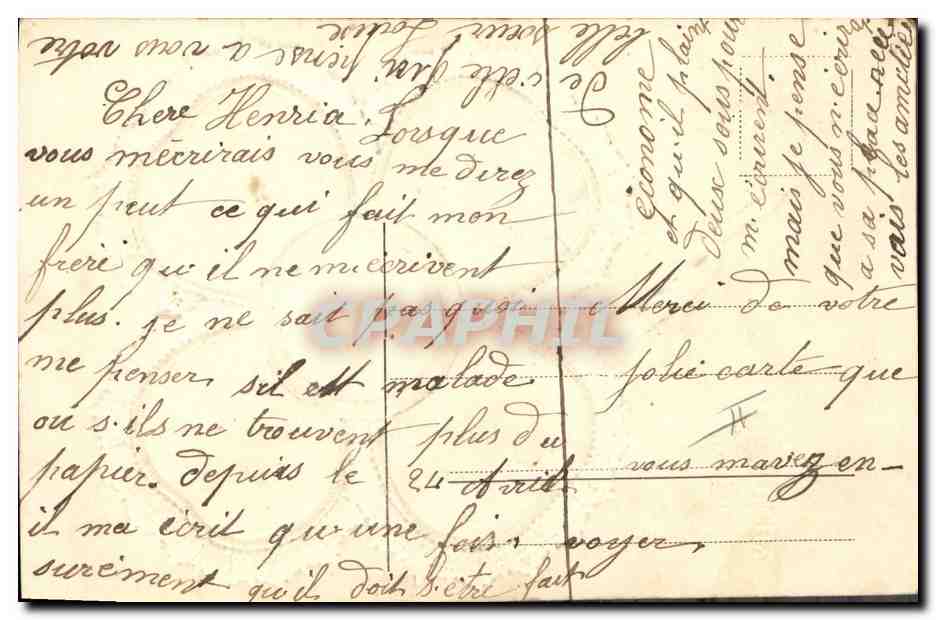 Chere Henria. Lorsque
vous mécrirais vous me direz
un peut ce qui fait mon
frère qu'il ne m.écrivent
plus. je ne sait pas quoi
me penser s'il est malade
ou s.ils ne trouvent plus du
papier. depuis le 24 Avril
il ma écrit qu'une fois.
surement qu'il doit s.etre fait
économe
et qu'il plaint
deux sous pour
m'écrirent
mais je pense
que vous n'ecrire
a sa
vais les amitiés
De celle qui pense a vous votre
belle soeur Louise
Merci de votre
jolie carte que
vous mavez en-
voyer.
CPAPHIL